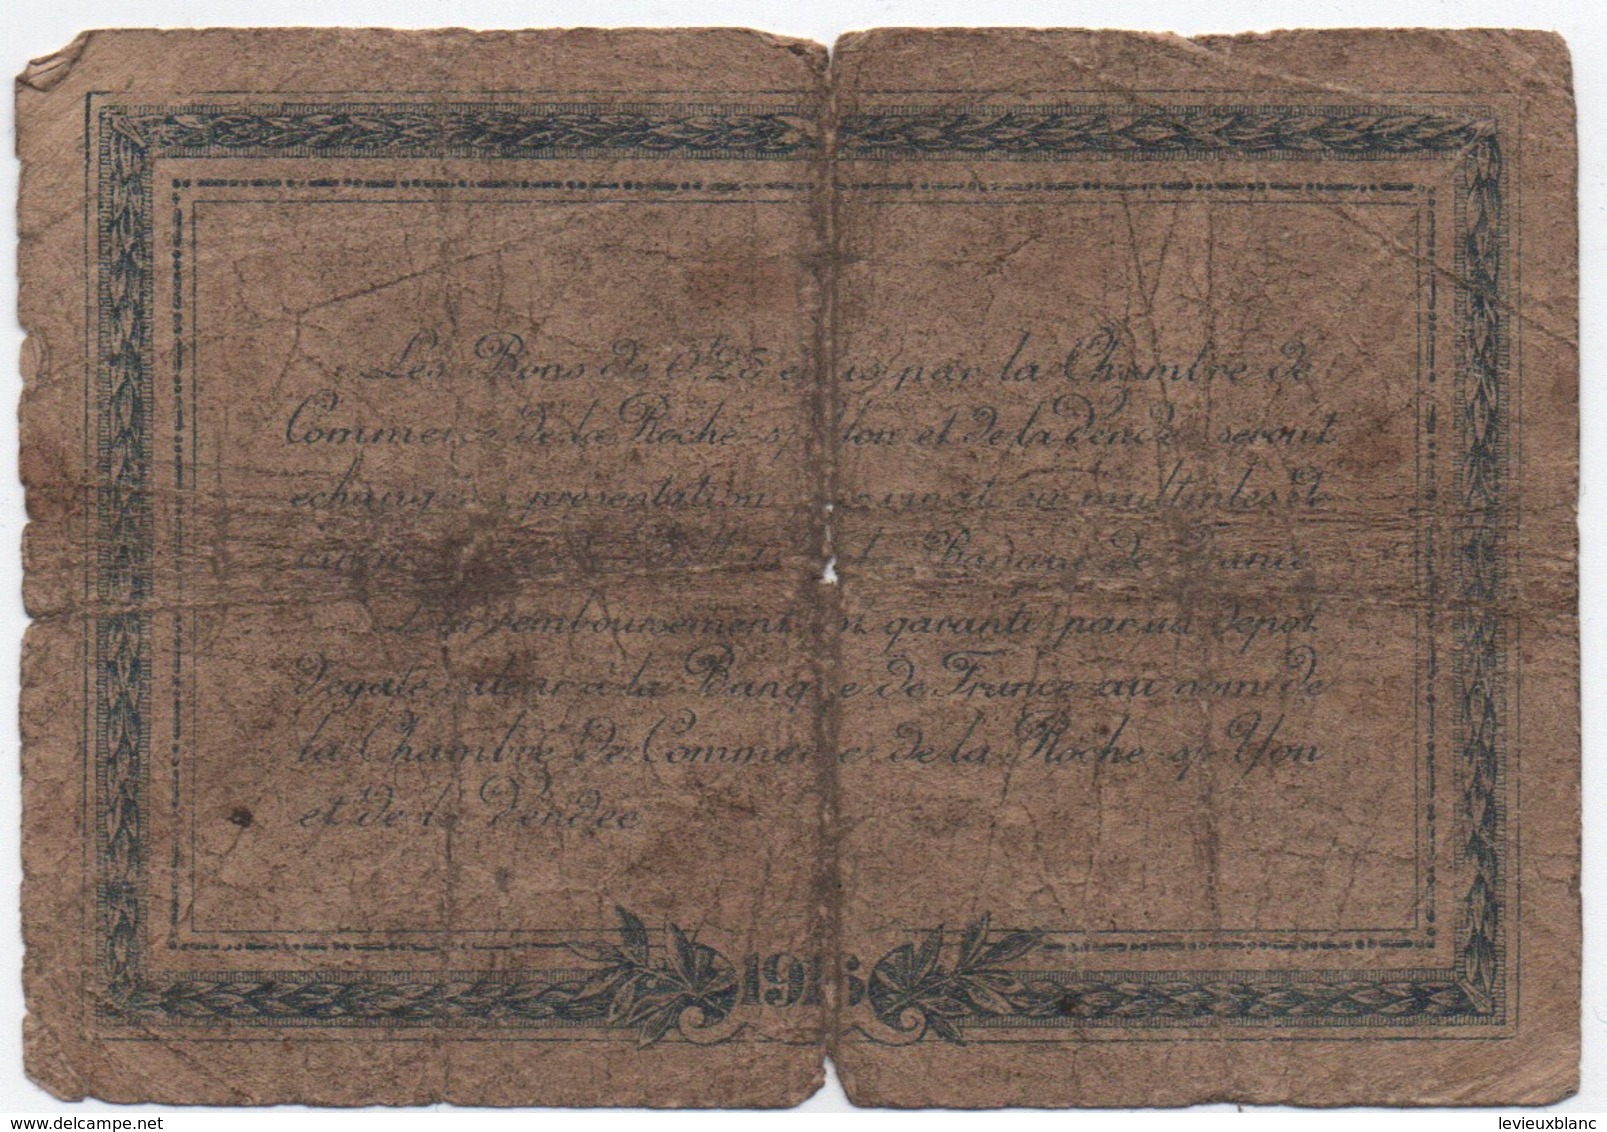 Les Bons de 0fr25 émis par la Chambre de
Commerce de la Roche-sr-Yon et de la Vendée seront
echangés présentation multiples de
Banque de France
Leur remboursement est garanti par un dépot
d'égale valeur à la Banque de France au nom de
la Chambre de Commerce de la Roche-sr-Yon
et de la Vendée
1916
delcampe.net
levieuxblanc